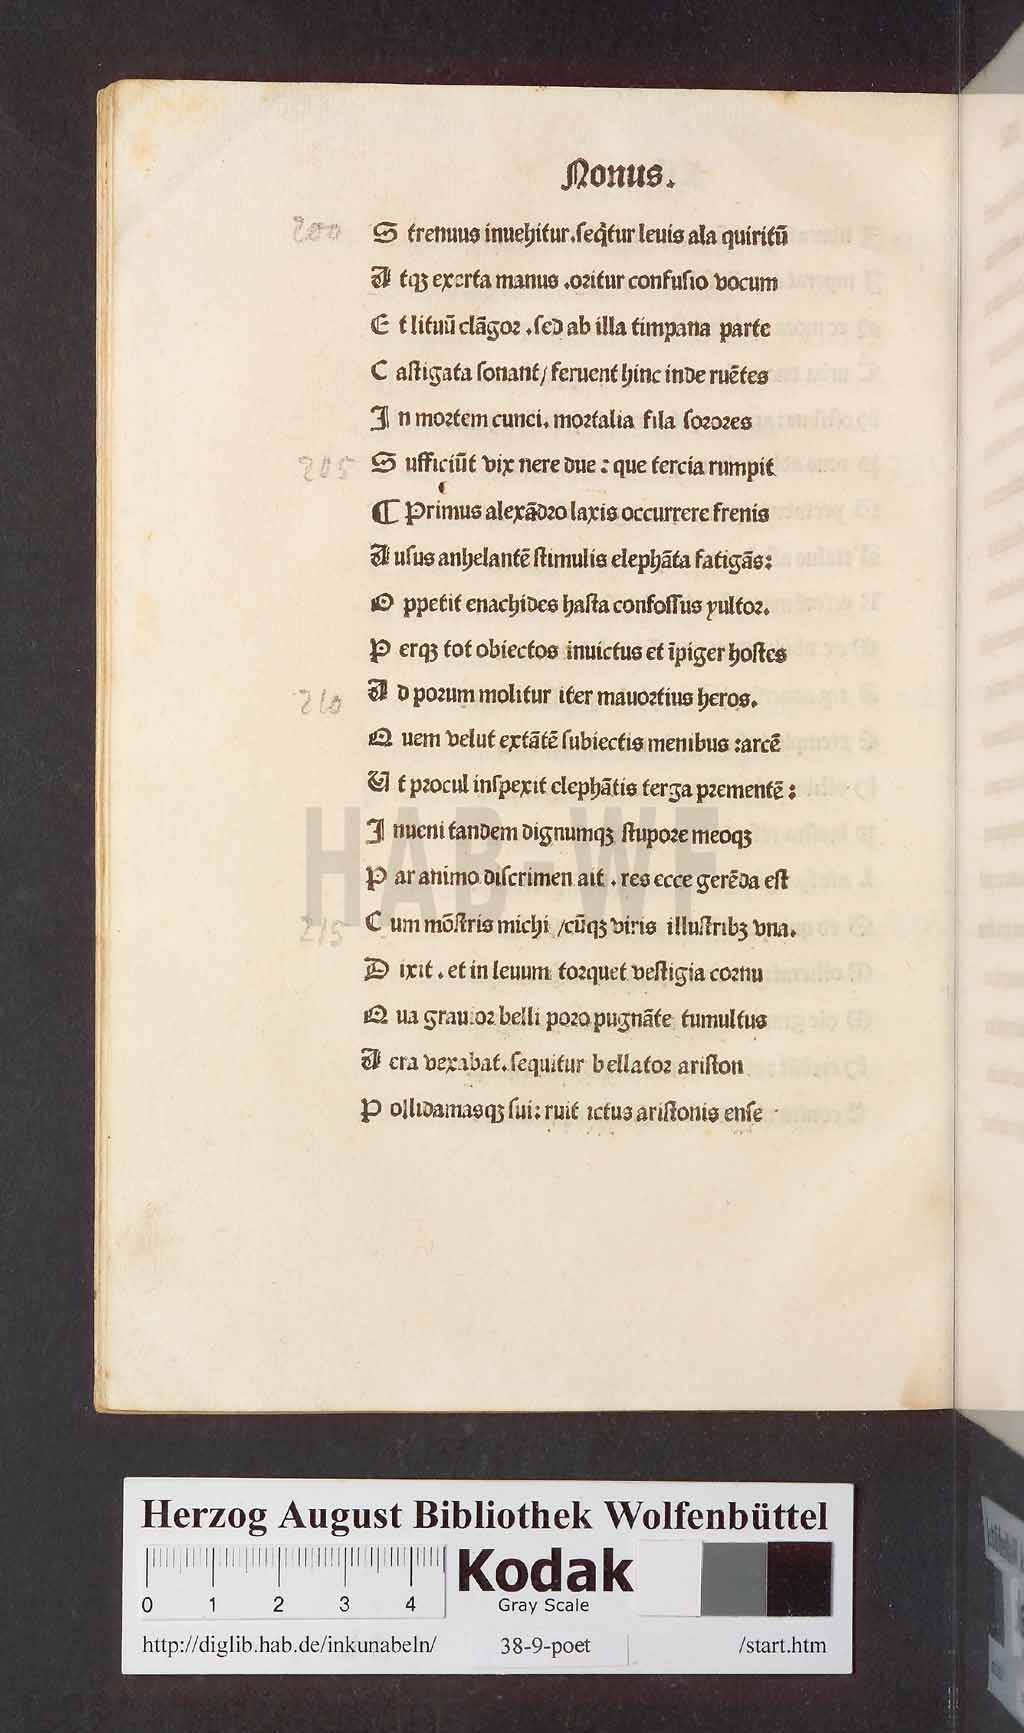 Nonus.
200 S trenuus inuehitur.seq̃tur leuis ala quiritũ
A tqꝫ exerta manus .oritur confusio vocum
E t lituũ clãgor .sed ab illa timpana parte
C astigata sonant/ feruent hinc inde ruẽtes
I n mortem cunci. mortalia fila sorores
205 S ufficiũt vix nere due : que tercia rumpit
¶ Primus alexãdro laxis occurrere frenis
A usus anhelantẽ stimulis elephãta fatigãs:
O ppetit enachides hasta confossus yultor.
P erqꝫ tot obiectos inuictus et ĩpiger hostes
210 A d porum molitur iter mauortius heros.
Q uem velut extãtẽ subiectis menibus :arcẽ
U t procul inspexit elephãtis terga prementẽ :
I nueni tandem dignumqꝫ stupore meoqꝫ
P ar animo discrimen ait . res ecce gerẽda est
215 C um mõstris michi /cũqꝫ viris illustribꝫ vna.
D ixit . et in leuum torquet vestigia cornu
Q ua grauior belli poro pugnãte tumultus
A era vexabat. sequitur bellator ariston
P ollidamasqꝫ sui: ruit ictus aristonis ense
HAB-WF
Herzog August Bibliothek Wolfenbüttel
0 1 2 3 4 Kodak
Gray Scale
http://diglib.hab.de/inkunabeln/ 38-9-poet /start.htm